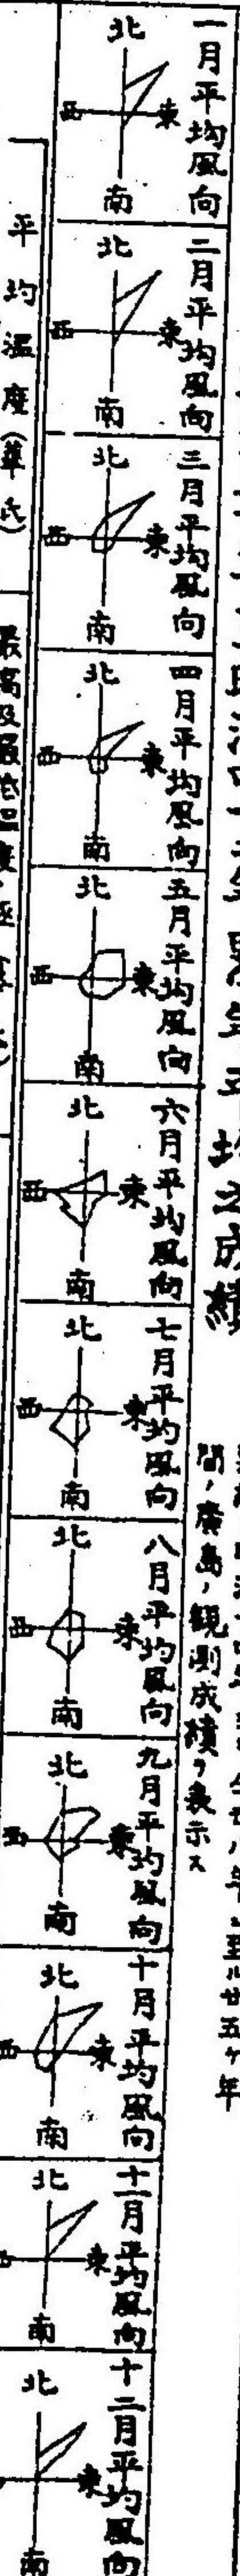 平均之成績
間ノ廣島ノ観測成績ヲ表示ス
至ル廿五ヶ年
一月平均風向
北
西
東
南
二月平均風向
北
西
東
南
三月平均風向
北
西
東
南
四月平均風向
北
西
東
南
五月平均風向
北
西
東
南
六月平均風向
北
西
東
南
七月平均風向
北
西
東
南
八月平均風向
北
西
東
南
九月平均風向
北
西
東
南
十月平均風向
北
西
東
南
十一月平均風向
北
東
南
十二月平均風向
北
東
南
平均温度(華氏)
最高及最低温度